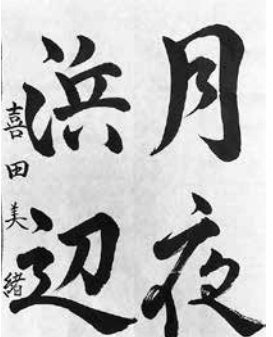 月夜
浜辺
喜田美緒